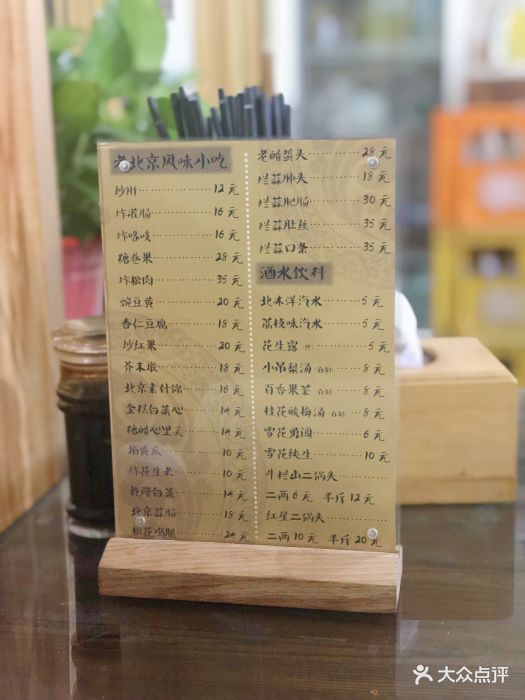 老北京风味小吃
炒肝 12元
炸灌肠 16元
炸咯吱 16元
糖卷果 25元
炸松肉 35元
豌豆黄 20元
杏仁豆腐 18元
炒红果 20元
芥末墩 18元
北京素什锦 16元
金糕白菜心 14元
糖醋心里美 14元
拍黄瓜 10元
炸花生米 10元
乾隆白菜 14元
北京蒜肠 18元
松花鸡腿 24元
老醋蜇头 28元
烂蒜肺头 18元
烂蒜肥肠 30元
烂蒜肚丝 35元
烂蒜口条 35元
酒水饮料
北冰洋汽水 5元
荔枝味汽水 5元
花生露 5元
小吊梨汤 自制 8元
百香果茶 自制 8元
桂花酸梅汤 自制 8元
雪花勇闯 6元
雪花纯生 10元
牛栏山二锅头
二两6元 半斤12元
红星二锅头
二两10元 半斤20元
大众点评